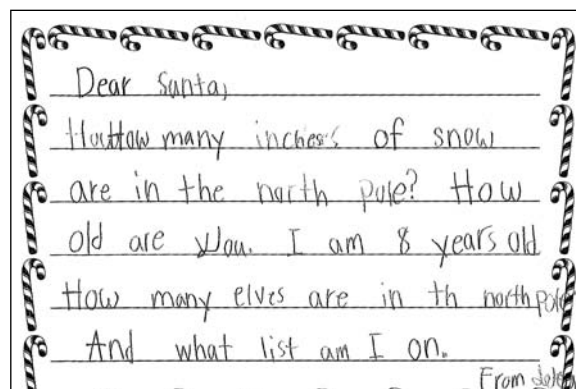 Dear Santa,
How many inches of snow
are in the north pole? How
old are you. I am 8 years old
How many elves are in th north pole
And what list am I on.
From